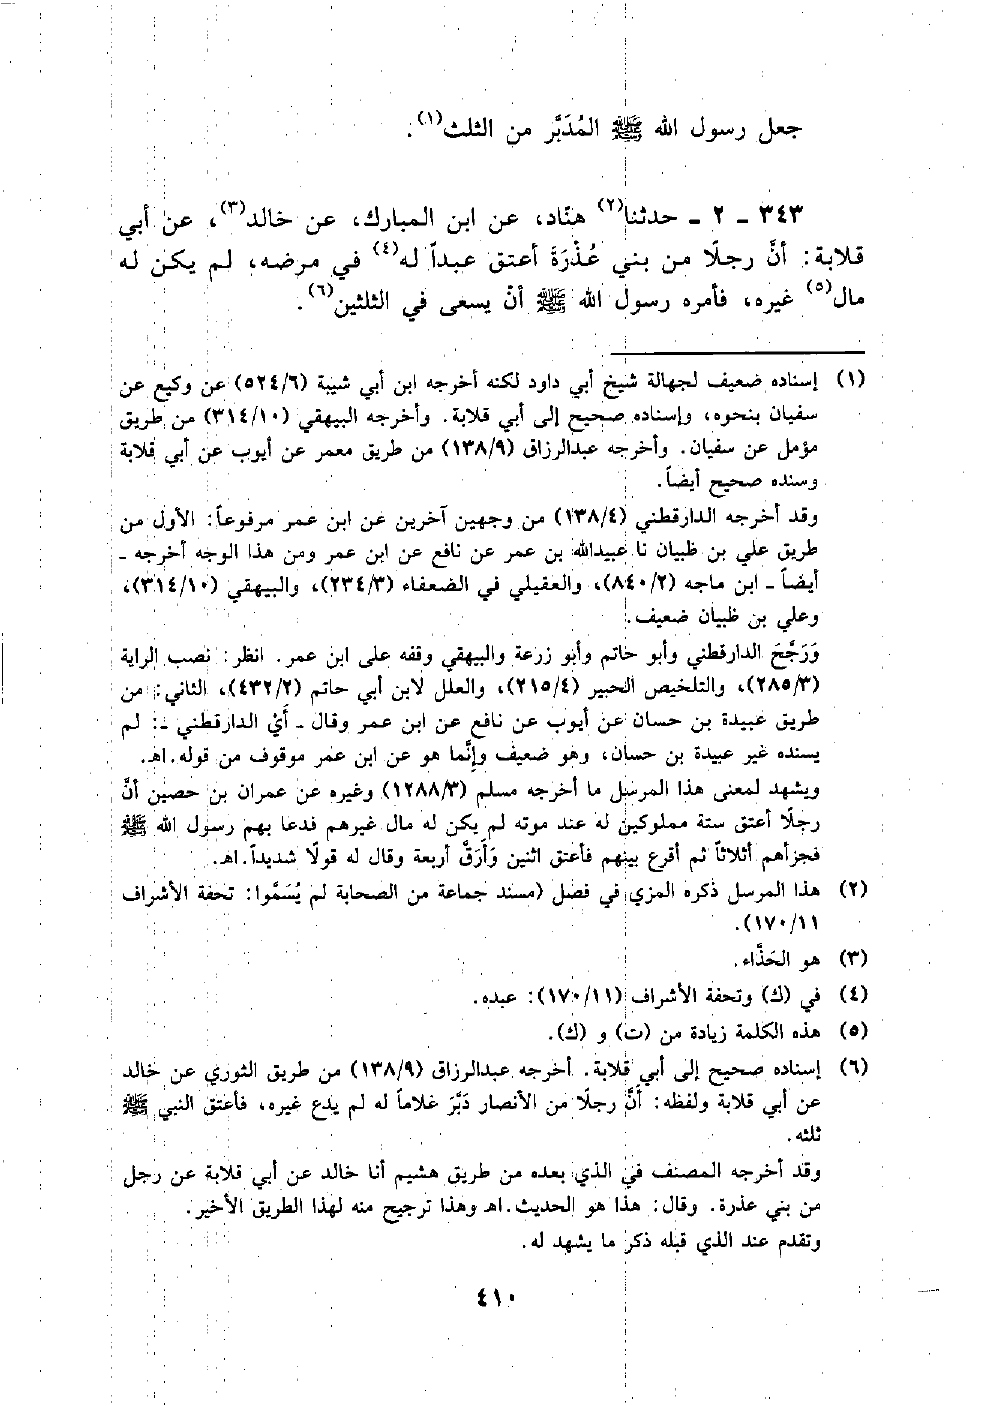 جعل رسول الله ﷺ المُدَبَّر من الثلث(١).
٣٤٣ ـ ٢ ـ حدثنا(٢) هنّاد، عن ابن المبارك، عن خالد(٣)، عن أبي
قلابة: أنَّ رجلًا من بني عُذْرَةَ أعتق عبداً له(٤) في مرضه، لم يكن له
مال(٥) غيره، فأمره رسول الله ﷺ أنْ يسعى في الثلثين(٦).
(١) إسناده ضعيف لجهالة شيخ أبي داود لكنه أخرجه ابن أبي شيبة (٥٢٤/٦) عن وكيع عن
سفيان بنحوه، وإسناده صحيح إلى أبي قلابة. وأخرجه البيهقي (٣١٤/١٠) من طريق
مؤمل عن سفيان. وأخرجه عبدالرزاق (١٣٨/٩) من طريق معمر عن أيوب عن أبي قلابة
وسنده صحيح أيضاً.
وقد أخرجه الدارقطني (١٣٨/٤) من وجهين آخرين عن ابن عمر مرفوعاً: الأول من
طريق علي بن ظبيان نا عبيدالله بن عمر عن نافع عن ابن عمر ومن هذا الوجه أخرجه ـ
أيضاً ـ ابن ماجه (٨٤٠/٢)، والعقيلي في الضعفاء (٢٣٤/٣)، والبيهقي (٣١٤/١٠)،
وعلي بن ظبيان ضعيف.
وَرَجَّحَ الدارقطني وأبو حاتم وأبو زرعة والبيهقي وقفه على ابن عمر. انظر: نصب الراية
(٢٨٥/٣)، والتلخيص الحبير (٢١٥/٤)، والعلل لابن أبي حاتم (٤٣٢/٢)، الثاني: من
طريق عبيدة بن حسان عن أيوب عن نافع عن ابن عمر وقال ـ أَيْ الدارقطني ـ: لم
يسنده غير عبيدة بن حسان، وهو ضعيف وإنَّما هو عن ابن عمر موقوف من قوله.اهـ.
ويشهد لمعنى هذا المرسل ما أخرجه مسلم (١٢٨٨/٣) وغيره عن عمران بن حصين أنَّ
رجلًا أعتق ستة مملوكين له عند موته لم يكن له مال غيرهم فدعا بهم رسول الله ﷺ
فجزأهم أثلاثاً ثم أقرع بينهم فأعتق اثنين وَأَرَقَّ أربعة وقال له قولًا شديداً.اهـ.
(٢) هذا المرسل ذكره المزي في فصل (مسند جماعة من الصحابة لم يُسَمَّوا: تحفة الأشراف
١٧٠/١١).
(٣) هو الحَذَّاء.
(٤) في (ك) وتحفة الأشراف (١٧٠/١١): عبده.
(٥) هذه الكلمة زيادة من (ت) و (ك).
(٦) إسناده صحيح إلى أبي قلابة. أخرجه عبدالرزاق (١٣٨/٩) من طريق الثوري عن خالد
عن أبي قلابة ولفظه: أَنَّ رجلًا من الأنصار دَبَّرَ غلاماً له لم يدع غيره، فأعتق النبي ﷺ
ثلثه.
وقد أخرجه المصنف في الذي بعده من طريق هشيم أنا خالد عن أبي قلابة عن رجل
من بني عذرة. وقال: هذا هو الحديث.اهـ وهذا ترجيح منه لهذا الطريق الأخير.
وتقدم عند الذي قبله ذكر ما يشهد له.
٤١٠